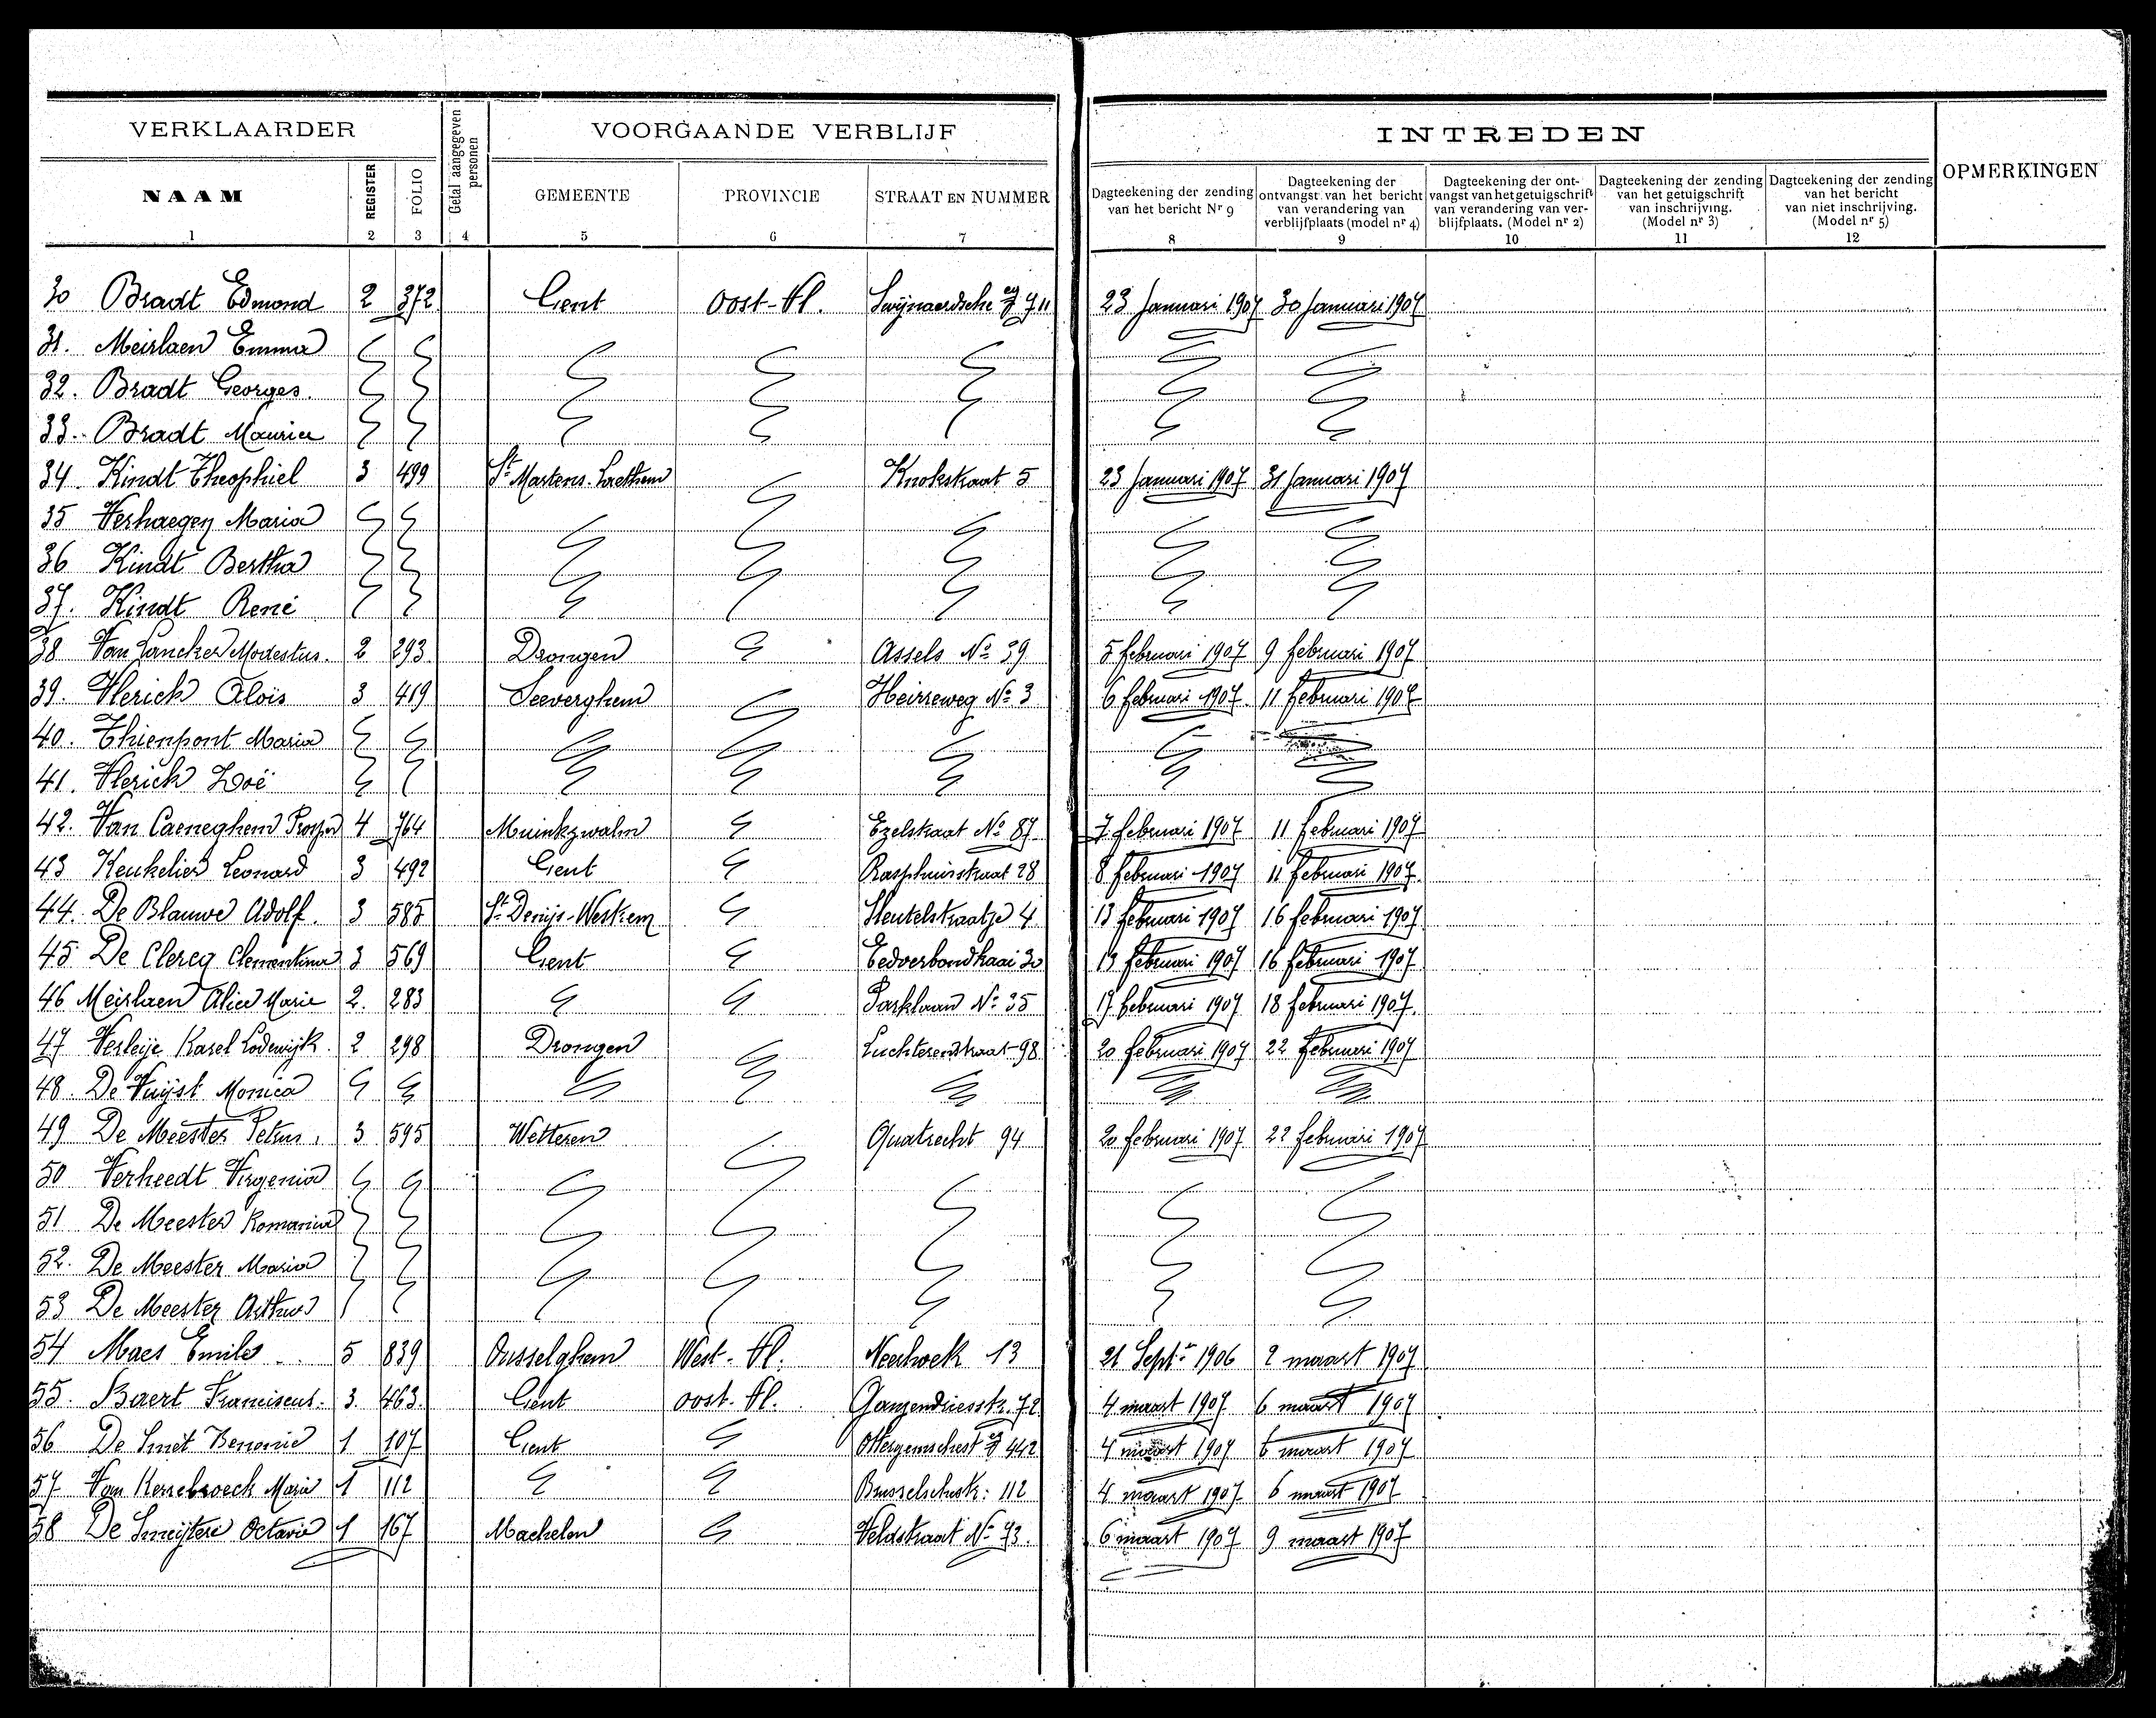 VERKLAARDER
Getal aangegeven personen
VOORGAANDE VERBLIJF
INTREDEN
OPMERKINGEN
NAAM REGISTER FOLIO GEMEENTE PROVINCIE STRAAT EN NUMMER
Dagteekening der zending van het bericht Nr 9
Dagteekening der ontvangst van het bericht van verandering van verblijfplaats (model nr 4)
Dagteekening der ontvangst van het getuigschrift van verandering van verblijfplaats. (Model nr 2)
Dagteekening der zending van het getuigschrift van inschrijving. (Model nr 3)
Dagteekening der zending van het bericht van niet inschrijving. (Model nr 5)
1 2 3 4 5 6 7 8 9 10 11 12
30 Bradt Edmond 2 372 Gent Oost-Vl. Swijnaerdsche 23 Januari 1907 30 Januari 1907
31. Meirlaen Emma
32. Bradt Georges.
33. Bradt Maurice
34. Kindt Theophiel 3 499 St Martens-Laethem Knokstraat 5 23 Januari 1907 31 Januari 1907
35 Verhaegen Maria
36 Kindt Bertha
37. Kindt René
38 Van Lancker Modestus. 2 293 Drongen Assels No 39 5 februari 1907 9 februari 1907
39. Vlerick Alois 3 419 Seeverghem Heirreweg No 3 6 februari 1907 11 februari 1907
40. Thienpont Maria
41. Vlerick Zoë
42. Van Caeneghem Prosper 4 764 Muinkzwalm Ezelstraat No 87 7 februari 1907 11 februari 1907
43 Keukelier Leonard 3 492 Gent Rasphuisstraat 28 8 februari 1907 11 februari 1907
44. De Blauwe Adolf. 3 585 St Denijs-Westrem Sleutelstraatje 4 13 februari 1907 16 februari 1907
45 De Clercq Clementina 3 569 Gent Eedverbondkaai 30 13 februari 1907 16 februari 1907
46 Meirlaen Alice Marie 2. 283 Parklaan No 35 17 februari 1907 18 februari 1907.
47 Verleije Karel Lodewijk. 2 298 Drongen Luchterenstraat 98 20 februari 1907 22 februari 1907
48. De Vuijst Monica
49 De Meester Petrus. 3 595 Wetteren Quatrecht 94 20 februari 1907 22 februari 1907
50 Verheedt Virgenia
51 De Meester
52. De Meester Maria
53 De Meester Arthur
54 Maes Emile 5 839 Ousselghem West-Vl. Neerhoek 13 21 Septr 1906 2 maart 1907
55. Baert Franciscus. 3. 463. Gent oost-Vl. Ganzendriesstr. 72 4 maart 1907 6 maart 1907
56 De Smet Benonie 1 107 Gent 442 4 maart 1907 6 maart 1907
57 Van Kerrebroeck Marie 1 112 Brusselschestr: 112 4 maart 1907 6 maart 1907
58 De Smeijtere Octavie 1 167 Machelen Veldstraat No 73. 6 maart 1907 9 maart 1907